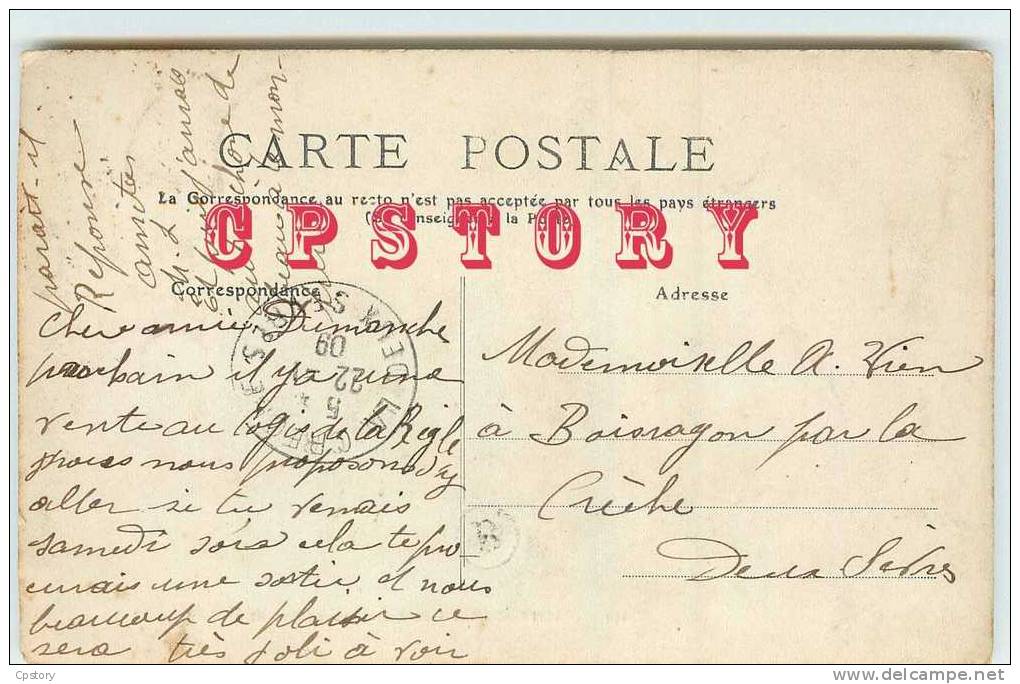 CARTE POSTALE
La Correspondance au recto n'est pas acceptée par tous les pays étrangers
(se renseigner à la Poste)
CPSTORY
Correspondance
Adresse
Chère amie Dimanche
prochain il y a une
vente au logis de la
nous nous proposons d'y
aller si tu venais
samedi soir cela te pro
curais une sortie et nous
beaucoup de plaisir ce
sera très joli à voir
parait-il
Réponse
amitiés
Mademoiselle A. Vien
à Boisragon par la
Crèche
Deux Sèvres
5
22
09
Cpstory
www.delcampe.net